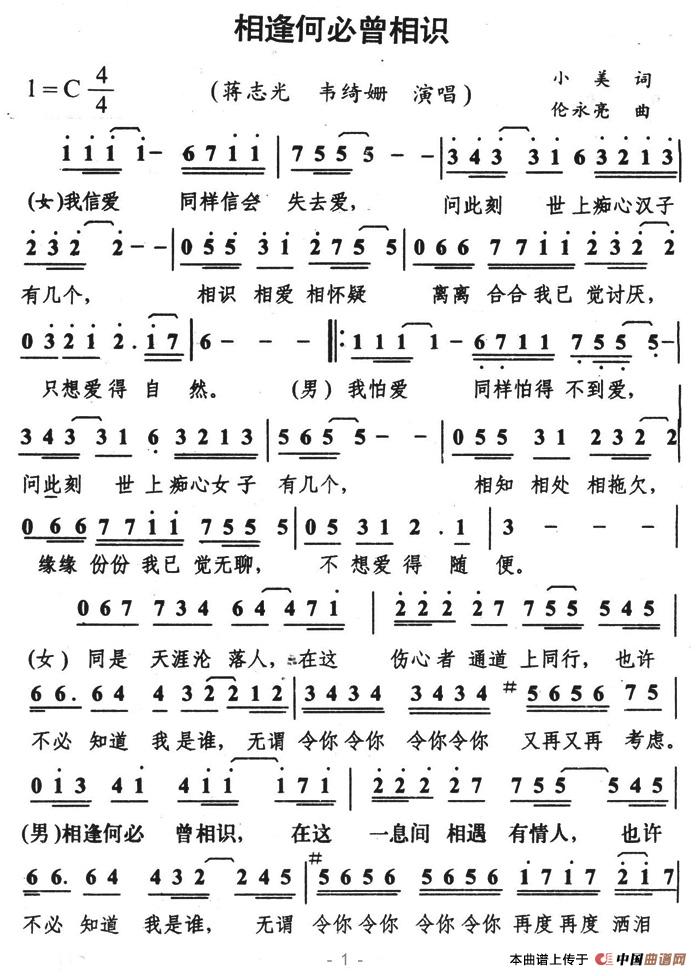 相逢何必曾相识
1=C 4/4
(蒋志光 韦绮姗 演唱)
小美 词
伦永亮 曲
1 1 1 1 1 - 6 7 1 1 | 7 5 5 5 5 - - | 3 4 3 3 1 6 3 2 1 3
(女)我信爱 同样信会 失去爱, 问此刻 世上痴心汉子
2 3 2 2 2 - - | 0 5 5 3 1 2 7 5 5 | 0 6 6 7 7 1 1 2 3 2 2
有几个, 相识 相爱 相怀疑 离离 合合我已 觉讨厌,
0 3 2 1 2. 1 7 | 6 - - - ‖: 1 1 1 1 1 - 6 7 1 1 7 5 5 5 - |
只想爱得 自 然。 (男)我怕爱 同样怕得 不到爱,
3 4 3 3 1 6 3 2 1 3 | 5 6 5 5 - - | 0 5 5 3 1 2 3 2 2
问此刻 世上痴心女子 有几个, 相知 相处 相拖欠,
0 6 6 7 7 1 1 7 5 5 5 | 0 5 3 1 2. 1 | 3 - - -
缘缘 份份 我已 觉无聊, 不想爱得 随 便。
0 6 7 7 3 4 6 4 4 4 7 1 | 2 2 2 2 7 7 5 5 5 4 5
(女)同是 天涯沦 落人, 在这 伤心者 通道 上同行, 也许
6 6. 6 4 4 3 2 2 2 1 2 | 3 4 3 4 3 4 3 4 #5 6 5 6 7 5 |
不必 知道 我是谁, 无谓 令你令你 令你令你 又再又再 考虑。
0 1 3 4 1 4 1 1 1 7 1 | 2 2 2 2 7 7 5 5 5 4 5
(男)相逢何必 曾相识, 在这 一息间 相遇 有情人, 也许
6 6. 6 4 4 3 2 2 2 4 5 | #5 6 5 6 5 6 5 6 1 7 1 7 2 1 7 |
不必 知道 我是谁, 无谓 令你令你 令你令你 再度再度 洒泪
- 1 -
本曲谱上传于 中国曲谱网